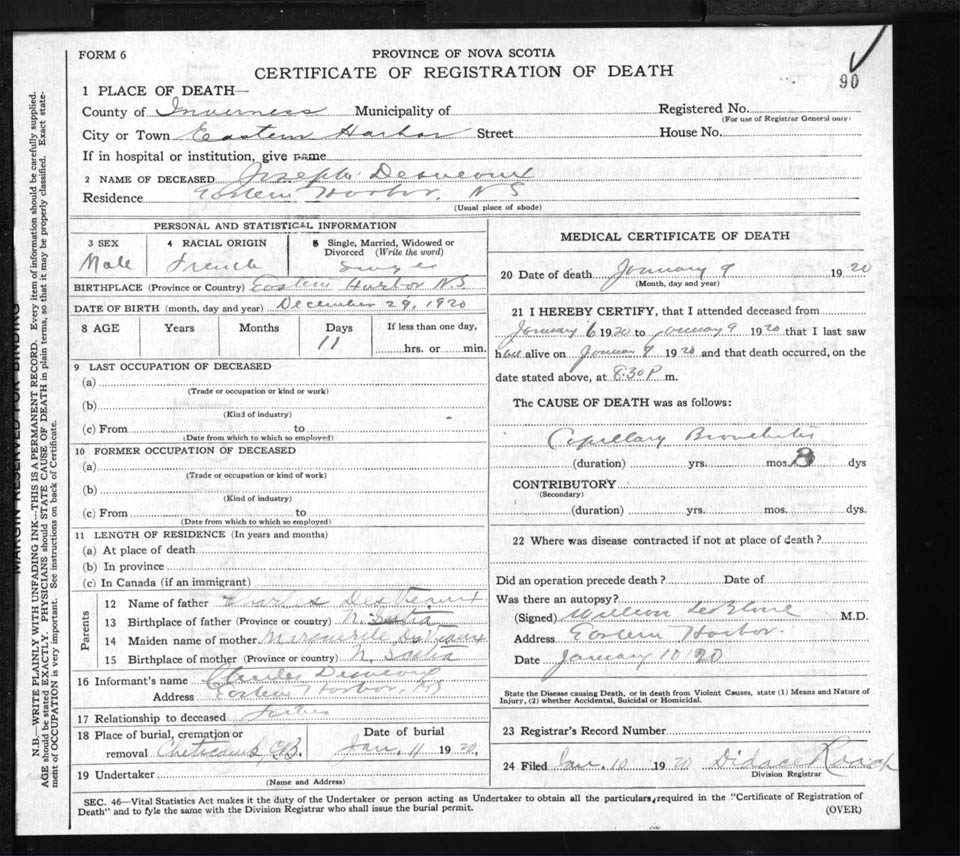 90
FORM 6
PROVINCE OF NOVA SCOTIA
CERTIFICATE OF REGISTRATION OF DEATH
1 PLACE OF DEATH—
County of Inverness Municipality of
Registered No.
(For use of Registrar General only)
City or Town Eastern Harbor Street
House No.
If in hospital or institution, give name
2 NAME OF DECEASED Joseph Desveaux
Residence Eastern Harbor, N S
(Usual place of abode)
PERSONAL AND STATISTICAL INFORMATION
3 SEX
Male
4 RACIAL ORIGIN
French
5 Single, Married, Widowed or
Divorced (Write the word)
Single
BIRTHPLACE (Province or Country) Eastern Harbor N.S
DATE OF BIRTH (month, day and year) December 29, 1920
8 AGE Years Months Days If less than one day,
11
hrs. or min.
9 LAST OCCUPATION OF DECEASED
(a)
(Trade or occupation or kind or work)
(b)
(Kind of industry)
(c) From to
(Date from which to which so employed)
10 FORMER OCCUPATION OF DECEASED
(a)
(Trade or occupation or kind of work)
(b)
(Kind of industry)
(c) From to
(Date from which to which so employed)
11 LENGTH OF RESIDENCE (In years and months)
(a) At place of death
(b) In province
(c) In Canada (if an immigrant)
Parents
12 Name of father Charles Desveaux
13 Birthplace of father (Province or country) N. Scotia
14 Maiden name of mother Marguerite Desveaux
15 Birthplace of mother (Province or country) N. Scotia
16 Informant's name Charles Desveaux
Address Eastern Harbor, NS
17 Relationship to deceased father
18 Place of burial, cremation or
removal Cheticamp, CB.
Date of burial
Jan. 11 1920.
19 Undertaker
(Name and Address)
MEDICAL CERTIFICATE OF DEATH
20 Date of death January 9 1920
(Month, day and year)
21 I HEREBY CERTIFY, that I attended deceased from
January 6 1920 to January 9 1920 that I last saw
h alive on January 9 1920 and that death occurred, on the
date stated above, at 8.30 P m.
The CAUSE OF DEATH was as follows:
Capillary Bronchitis
(duration) yrs. mos. 3 dys
CONTRIBUTORY
(Secondary)
(duration) yrs. mos. dys.
22 Where was disease contracted if not at place of death?
Did an operation precede death? Date of
Was there an autopsy?
(Signed) William LeBlanc M.D.
Address Eastern Harbor.
Date January 10 1920
State the Disease causing Death, or in death from Violent Causes, state (1) Means and Nature of
Injury, (2) whether Accidental, Suicidal or Homicidal.
23 Registrar's Record Number
24 Filed Jan. 10 1920 Didace
Division Registrar
SEC. 46—Vital Statistics Act makes it the duty of the Undertaker or person acting as Undertaker to obtain all the particulars required in the "Certificate of Registration of
Death" and to fyle the same with the Division Registrar who shall issue the burial permit.
(OVER)
MARGIN RESERVED FOR BINDING
N.B.—WRITE PLAINLY WITH UNFADING INK—THIS IS A PERMANENT RECORD. Every item of information should be carefully supplied.
AGE should be stated EXACTLY. PHYSICIANS should STATE CAUSE OF DEATH in plain terms, so that it may be properly classified. Exact state-
ment of OCCUPATION is very important. See instructions on back of Certificate.